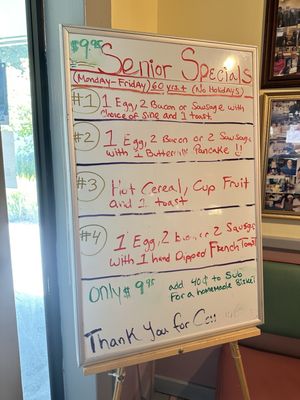 $9.95
Senior Specials
(Monday-Friday) 60 yrs.+ (No Holidays)
#1 1 Egg, 2 Bacon or Sausage with
choice of side and 1 toast
#2 1 Egg, 2 Bacon or 2 Sausage
with 1 Buttermilk Pancake !!
#3 Hot Cereal, Cup Fruit
and 1 toast
#4 1 Egg, 2 Bacon, or 2 Sausage
with 1 hand Dipped French Toast
Only $9.95 add 40¢ to Sub
For a homemade Bisket
Thank You for